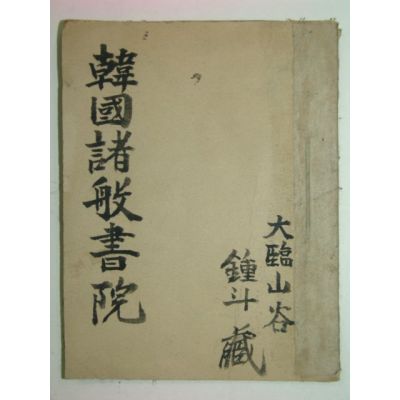 韓國諸般書院
大臨山谷
鍾斗藏